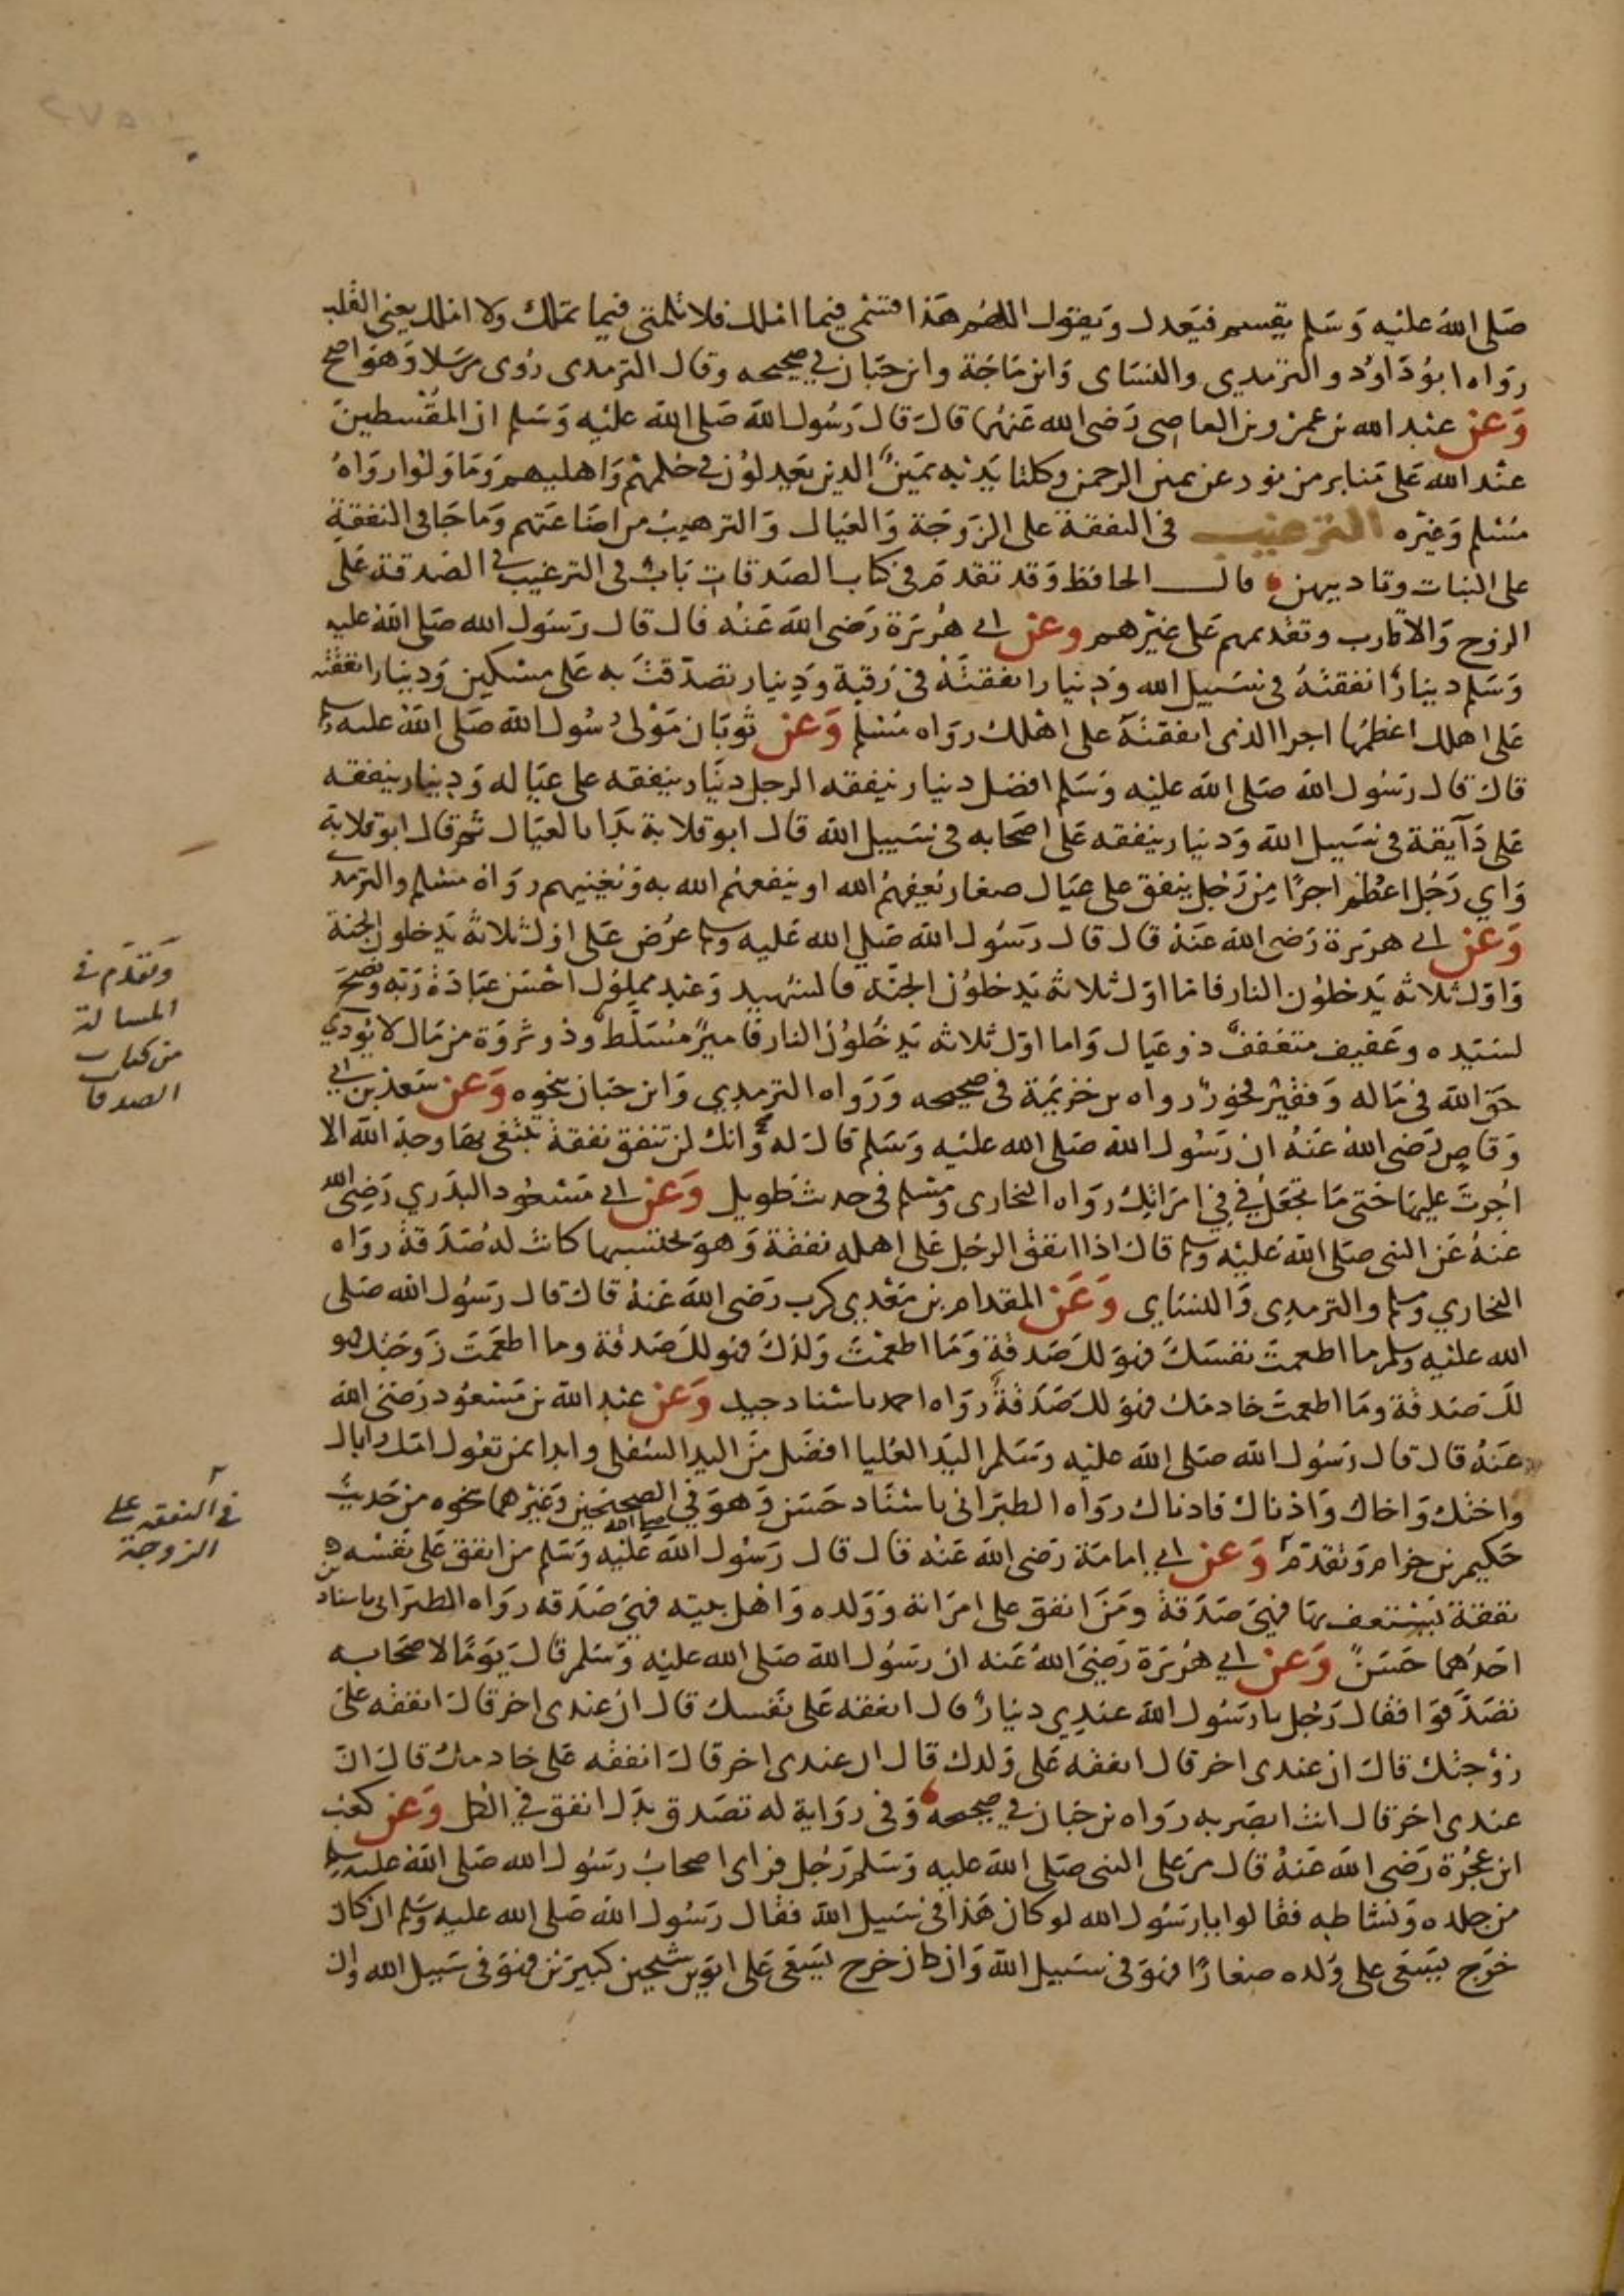 صلى الله عليه وسلم يقسم فيعدل ويقول اللهم هذا قسمي فيما املك فلا تلمني فيما تملك ولا املك يعني القلب
رواه ابو داود والترمذي والنساي وابن ماجة وابن حبان في صحيحه وقال الترمذي روى مرسلا وهو اصح
وعن عبد الله بن عمرو بن العاصي رضي الله عنهما قال قال رسول الله صلى الله عليه وسلم ان المقسطين
عند الله على منابر من نور عن يمين الرحمن وكلتا يديه يمين الذين يعدلون في حكمهم واهليهم وما ولوا رواه
مسلم وغيره الترغيب في النفقة على الزوجة والعيال والترهيب من اضاعتهم وما جا في النفقة
على البنات وتاديبهن قال الحافظ وقد تقدم في كتاب الصدقات باب في الترغيب في الصدقة على
الزوج والاقارب وتقديمهم على غيرهم وعن ابي هريرة رضي الله عنه قال قال رسول الله صلى الله عليه
وسلم دينار انفقته في سبيل الله ودينار انفقته في رقبة ودينار تصدقت به على مسكين ودينار انفقته
على اهلك اعظمها اجرا الذي انفقته على اهلك رواه مسلم وعن ثوبان مولى رسول الله صلى الله عليه وسلم
قال قال رسول الله صلى الله عليه وسلم افضل دينار ينفقه الرجل دينار ينفقه على عياله ودينار ينفقه
على دآبته في سبيل الله ودينار ينفقه على اصحابه في سبيل الله قال ابو قلابة بدا بالعيال ثم قال ابو قلابة
واي رجل اعظم اجرا من رجل ينفق على عيال صغار يعفهم الله او ينفعهم الله به ويغنيهم رواه مسلم والترمذي
وعن ابي هريرة رضي الله عنه قال قال رسول الله صلى الله عليه وسلم عرض على اول ثلاثة يدخلون الجنة
واول ثلاثة يدخلون النار فاما اول ثلاثة يدخلون الجنة فالشهيد وعبد مملوك احسن عبادة ربه ونصح
لسيده وعفيف متعفف ذو عيال واما اول ثلاثة يدخلون النار فامير مسلط وذو ثروة من مال لا يودي
حق الله في ماله وفقير فخور رواه بن خزيمة في صحيحه ورواه الترمذي وابن حبان بنحوه وعن سعد بن ابي
وقاص رضي الله عنه ان رسول الله صلى الله عليه وسلم قال له وانك لن تنفق نفقة تبتغي بها وجه الله الا
اجرت عليها حتى ما تجعل في في امراتك رواه البخاري ومسلم في حديث طويل وعن ابي مسعود البدري رضي الله
عنه عن النبي صلى الله عليه وسلم قال اذا انفق الرجل على اهله نفقة وهو يحتسبها كانت له صدقة رواه
البخاري ومسلم والترمذي والنساي وعن المقدام بن معدي كرب رضي الله عنه قال قال رسول الله صلى
الله عليه وسلم ما اطعمت نفسك فهو لك صدقة وما اطعمت ولدك فهو لك صدقة وما اطعمت زوجتك فهو
لك صدقة وما اطعمت خادمك فهو لك صدقة رواه احمد باسناد جيد وعن عبد الله بن مسعود رضي الله
عنه قال قال رسول الله صلى الله عليه وسلم اليد العليا افضل من اليد السفلى وابدا بمن تعول امك واباك
واختك واخاك وادناك فادناك رواه الطبراني باسناد حسن وهو في الصحيحين وغيرهما بنحوه من حديث
حكيم بن حزام وتقدم وعن ابي امامة رضي الله عنه قال قال رسول الله صلى الله عليه وسلم من انفق على نفسه
نفقة يستعف بها فهي صدقة ومن انفق على امراته وولده واهل بيته فهي صدقه رواه الطبراني باسنادين
احدهما حسن وعن ابي هريرة رضي الله عنه ان رسول الله صلى الله عليه وسلم قال يوما لاصحابه
تصدقوا فقال رجل يا رسول الله عندي دينار قال انفقه على نفسك قال ان عندي اخر قال انفقه على
زوجتك قال ان عندي اخر قال انفقه على ولدك قال ان عندي اخر قال انفقه على خادمك قال ان
عندي اخر قال انت ابصر به رواه بن حبان في صحيحه وفي رواية له تصدق بدل انفق في الكل وعن كعب
ابن عجرة رضي الله عنه قال مر على النبي صلى الله عليه وسلم رجل فراى اصحاب رسول الله صلى الله عليه وسلم
من جلده ونشاطه فقالوا يا رسول الله لو كان هذا في سبيل الله فقال رسول الله صلى الله عليه وسلم ان كان
خرج يسعى على ولده صغارا فهو في سبيل الله وان كان خرج يسعى على ابوين شيخين كبيرين فهو في سبيل الله وان
وتقدم في
المسالة
من كتاب
الصدقا
في النفقه على
الزوجة